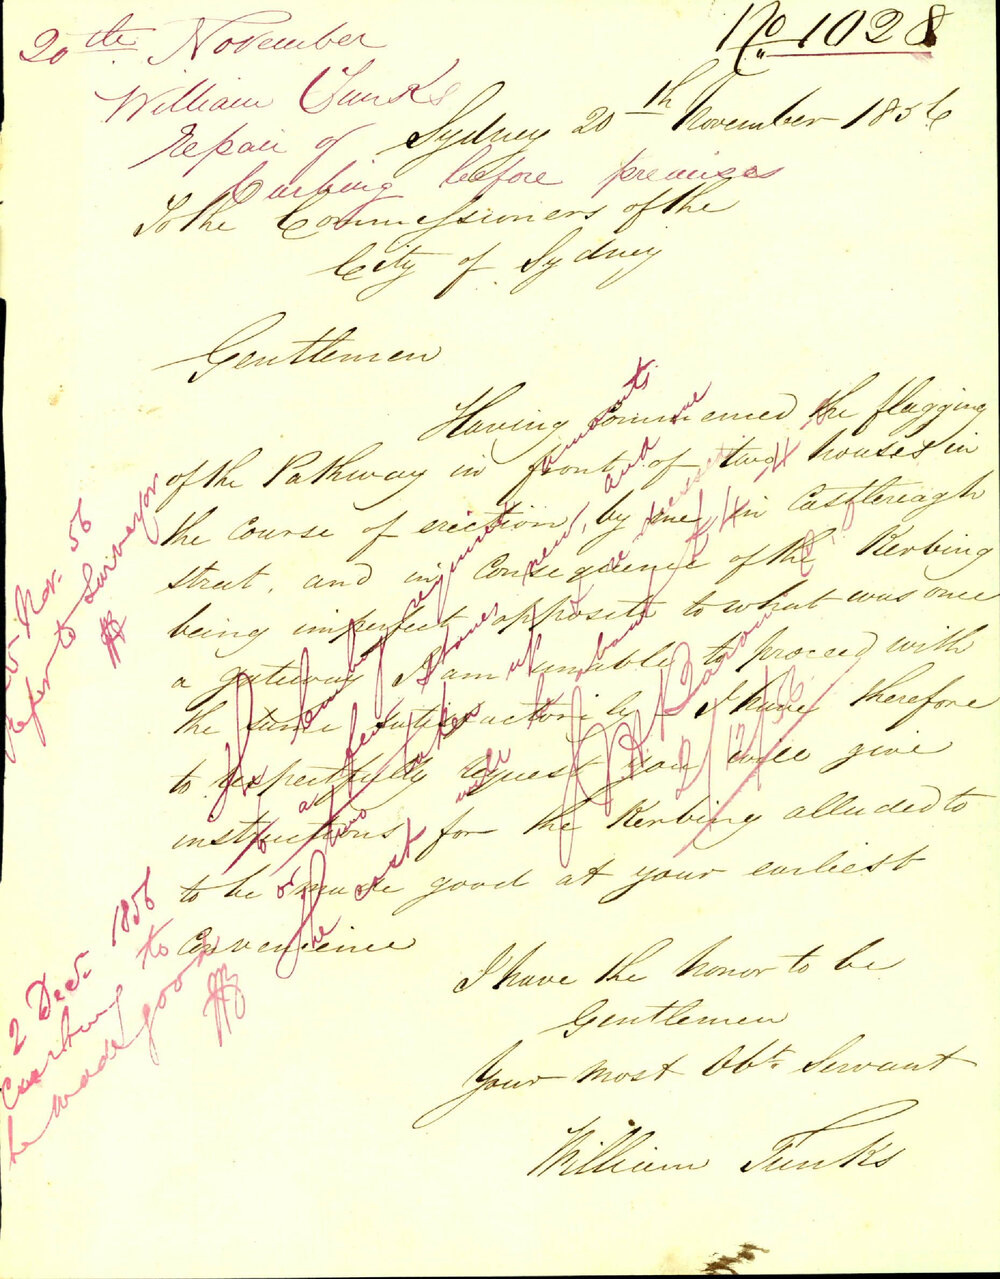 No. 1028
20th November
William Tunks
Repair of
Curbing before premises
Sydney 20th November 1856
To the Commissioners of the
City of Sydney
Gentlemen
Having Commenced the flagging
of the Pathway in front of two houses in
the course of erection, by me, in Castlereagh
street, and in Consequence of the Kerbing
being imperfect opposite to what was once
a gateway I am unable to proceed with
the same satisfactorily I have therefore
to respectfully request you will give
instructions for the Kerbing alluded to
to be made good at your earliest
Convenience
I have the honor to be
Gentlemen
Your most Obt. Servant
William Tunks
Nov. 56
Refer to Surveyor
The Curbing required amounts
to a few stones new, and one
or two taken up &
The cost will be about £4-4-
2/12/56
2 Decr. 1856
Curbing to
be made good